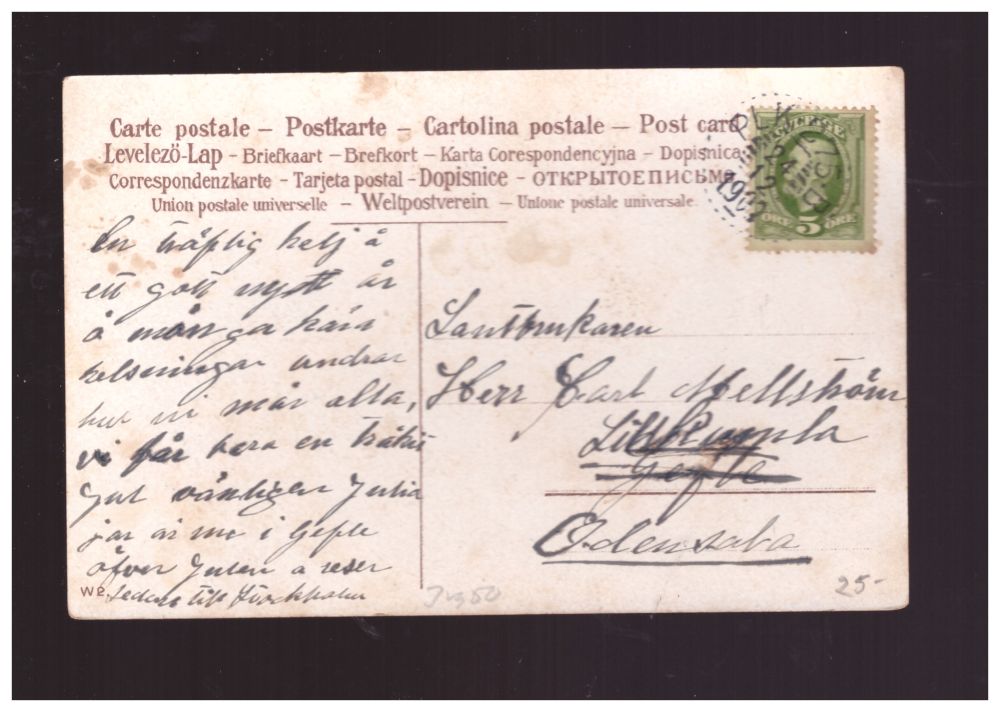 Carte postale – Postkarte – Cartolina postale – Post card
Levelezö-Lap – Briefkaart – Brefkort – Karta Corespondencyjna – Dopisnica
Correspondenzkarte – Tarjeta postal – Dopisnice – ОТКРЫТОЕ ПИСЬМО
Union postale universelle – Weltpostverein – Unione postale universale
24 12
1907
5
ÖRE ÖRE
En träflig helj å
ett gott nytt år
å många kära
helseningar undrar
hur ni mår alla,
vi får vara en
Jul vänligen Julia
jag är nu i Gefle
öfver Julen å reser
sedan till Stockholm
Lantbrukaren
Herr Carl Mellström
Lillkumla
Gefle
Odensala
W2.
25-